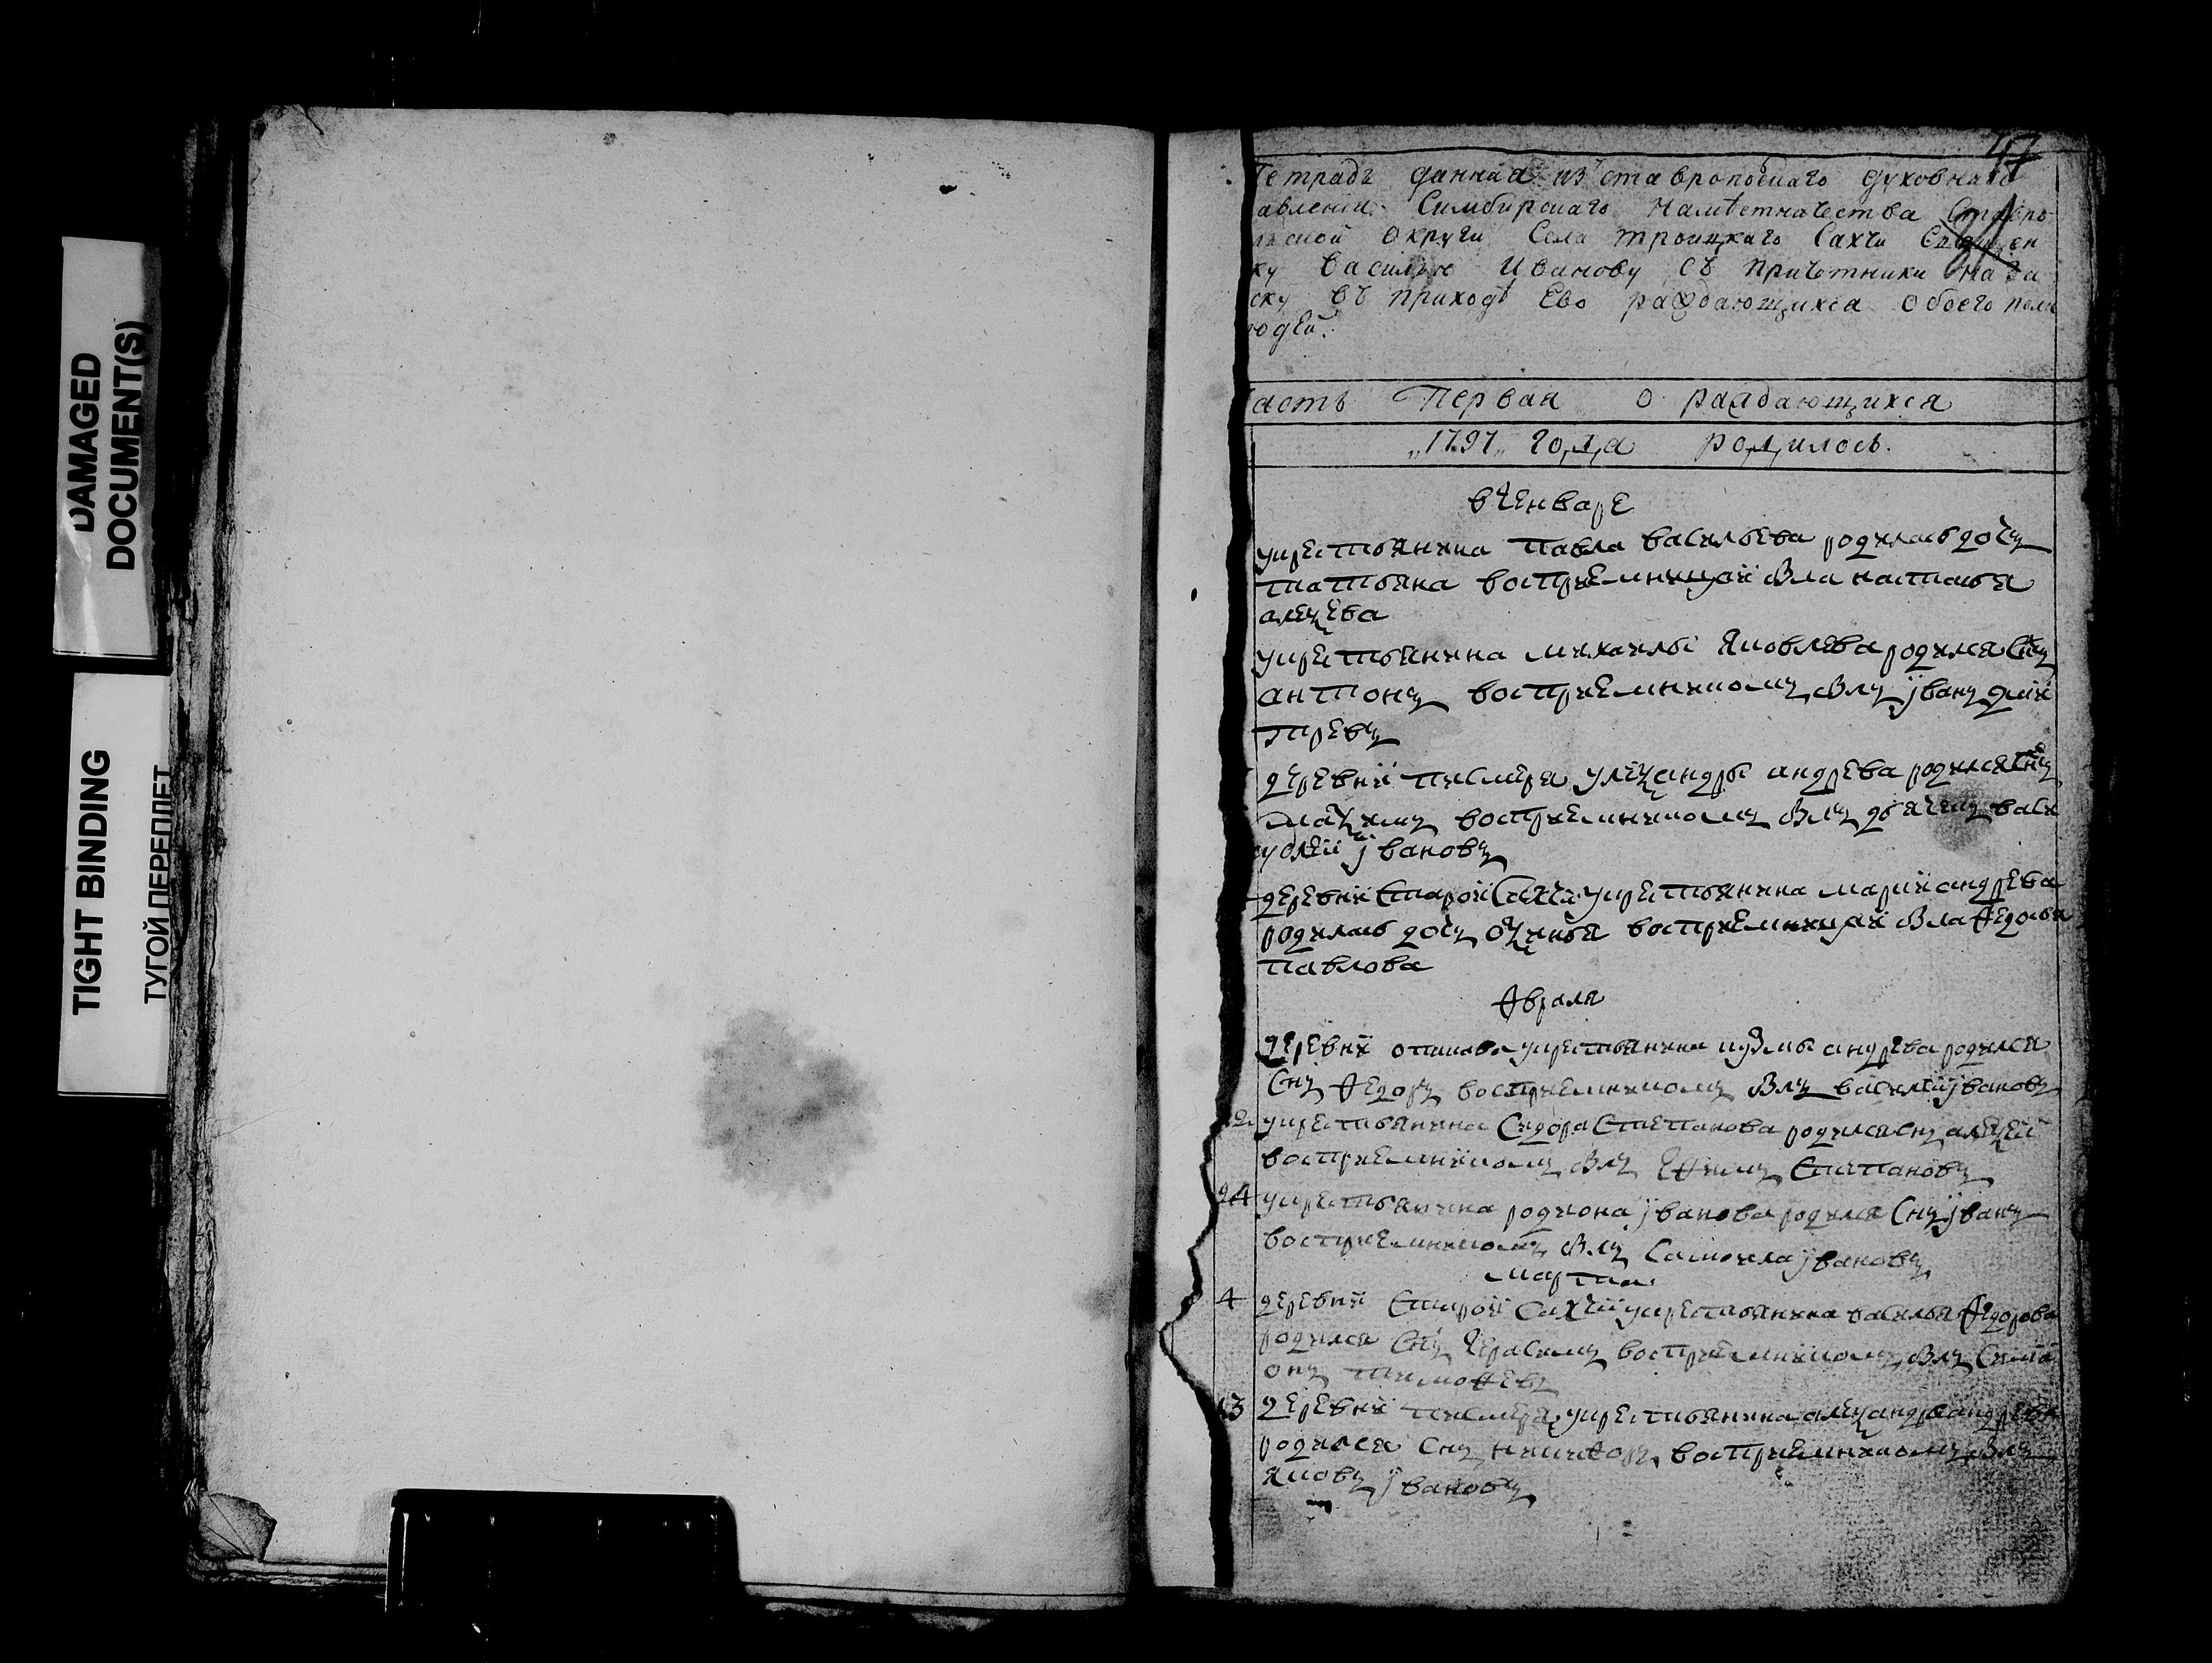 DAMAGED
DOCUMENT(S)
TIGHT BINDING
ТУГОЙ ПЕРЕПЛЕТ
47
Тетрадь данная из ставропольскаго духовнаго
авления Симбирскаго намѣстничества Ставро
льской округи Села троицкаго Сахчи Священ
ку василью Иванову съ причетники на за
ску въ приходѣ Ево раждающихся обоего пола
юдей.
асть Первая о раждающихся
„1797„ года родилось.
в генваре
укрестьянина павла васильева родилась дочь
татьяна восприемницай была настасья
алеѯева
укрестьянина михаилы яковлева родился снъ
антонъ восприемникомъ былъ їванъ дми
тревъ
деревни писмеря улеѯандры андрева родился снъ
маѯимъ восприемникомъ былъ дьячекъ васи
ївановъ
деревни старой Сахчи укрестьянина андрева
родилась дочь восприемницай была Ѳедосья
павлова
Ѳвраля
деревни укрестьянина кузмы андрева родился
снъ Ѳедоръ восприемникомъ былъ василий ївановъ
укрестьянина Сидора Степанова родился снъ алеѯей
восприемникомъ былъ Еѳимъ Степановъ
24 укрестьянина родиона їванова родился снъ їванъ
восприемникомъ былъ Самоила ївановъ
марта
4 деревни Старой Сахчи укрестьянина василья Ѳедорова
родился снъ герасимъ восприемникомъ былъ Симі
онъ тимоѳевъ
13 деревни писмеря укрестьянина алеѯандры андрева
родился снъ никиѳоръ восприемникомъ былъ
яковъ ївановъ